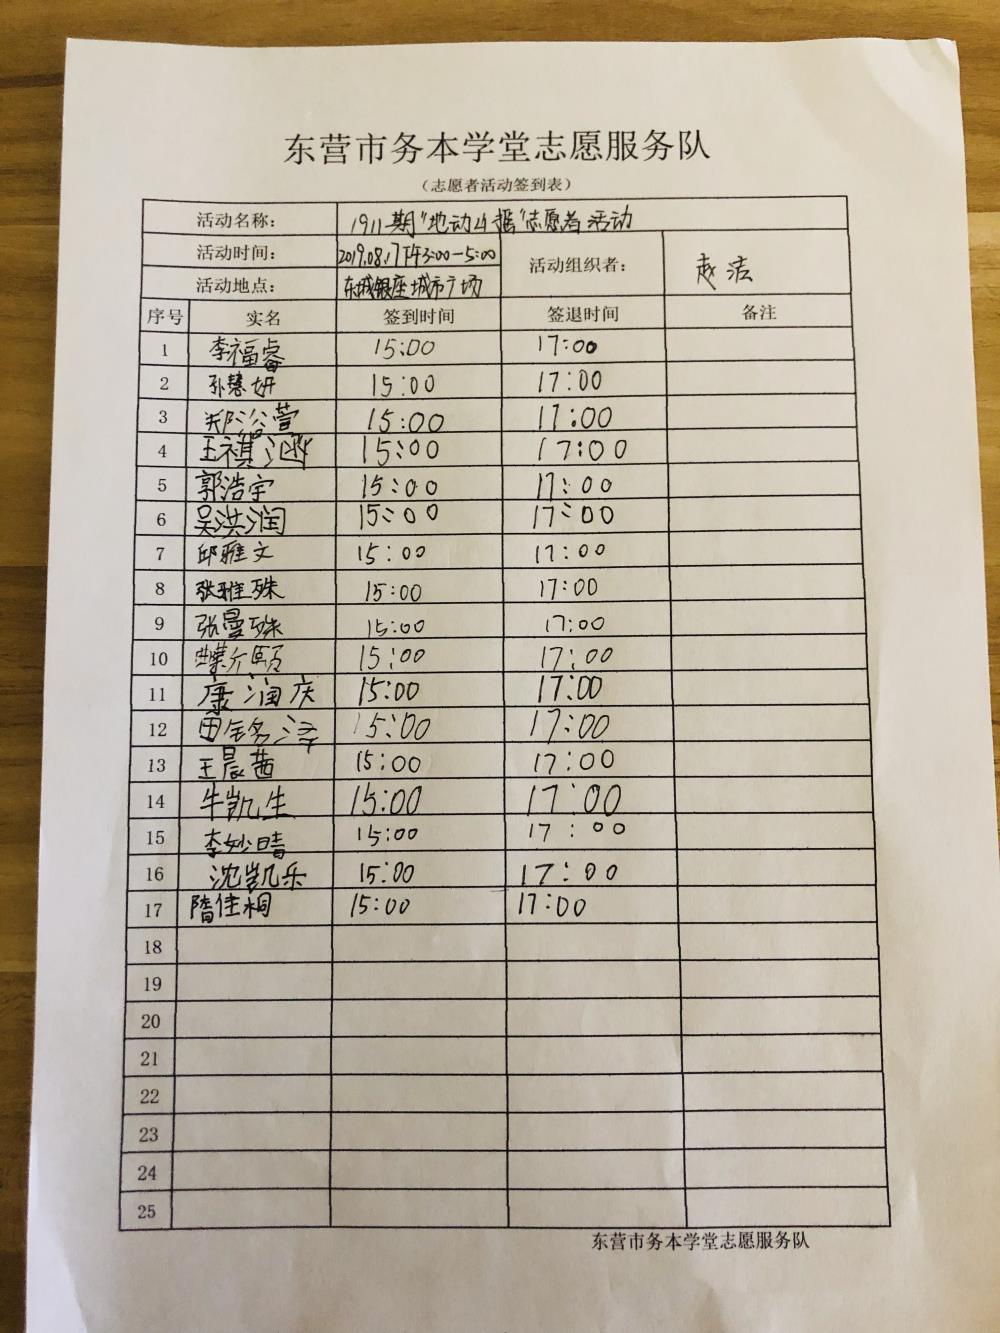 东营市务本学堂志愿服务队
（志愿者活动签到表）
活动名称： 1911期"地动山摇"志愿者活动
活动时间： 2019.08.17下午3:00-5:00 活动组织者： 赵洁
活动地点： 东城银座城市广场
序号 实名 签到时间 签退时间 备注
1 李福睿 15:00 17:00
2 孙慧妍 15:00 17:00
3 郑涵萱 15:00 17:00
4 王祺涵 15:00 17:00
5 郭浩宇 15:00 17:00
6 吴洪润 15:00 17:00
7 邱雅文 15:00 17:00
8 张雅殊 15:00 17:00
9 张曼殊 15:00 17:00
10 15:00 17:00
11 康润庆 15:00 17:00
12 田铭泽 15:00 17:00
13 王晨茜 15:00 17:00
14 牛凯生 15:00 17:00
15 李妙晴 15:00 17:00
16 沈凯乐 15:00 17:00
17 隋佳桐 15:00 17:00
18
19
20
21
22
23
24
25
东营市务本学堂志愿服务队